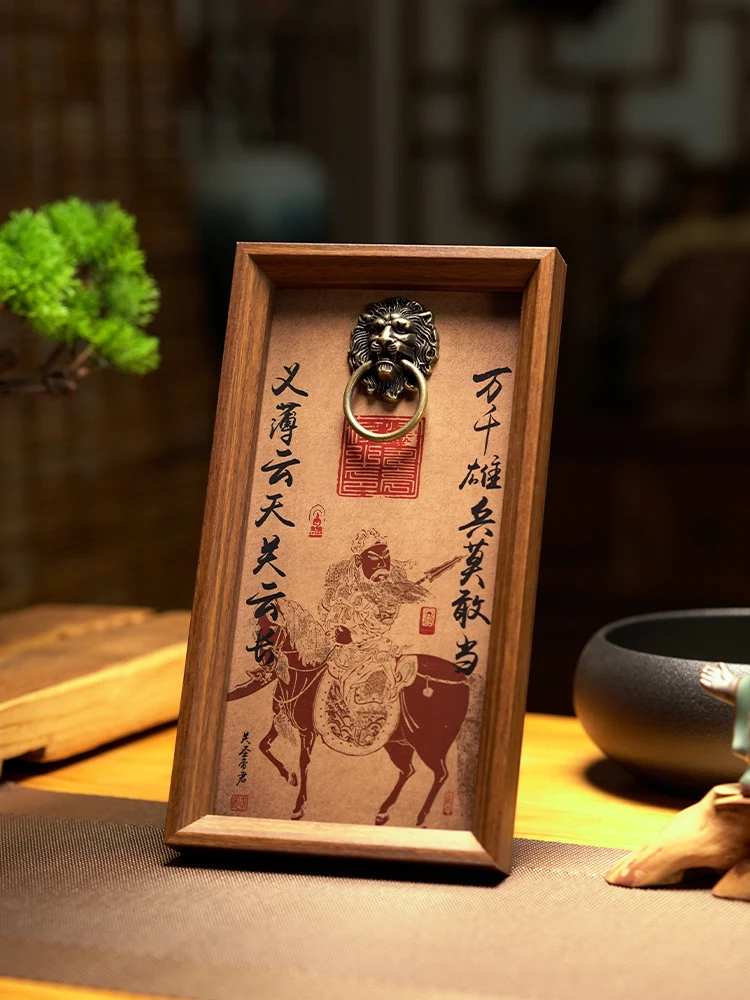 万千雄兵莫敢当
义薄云天关云长
关圣帝君